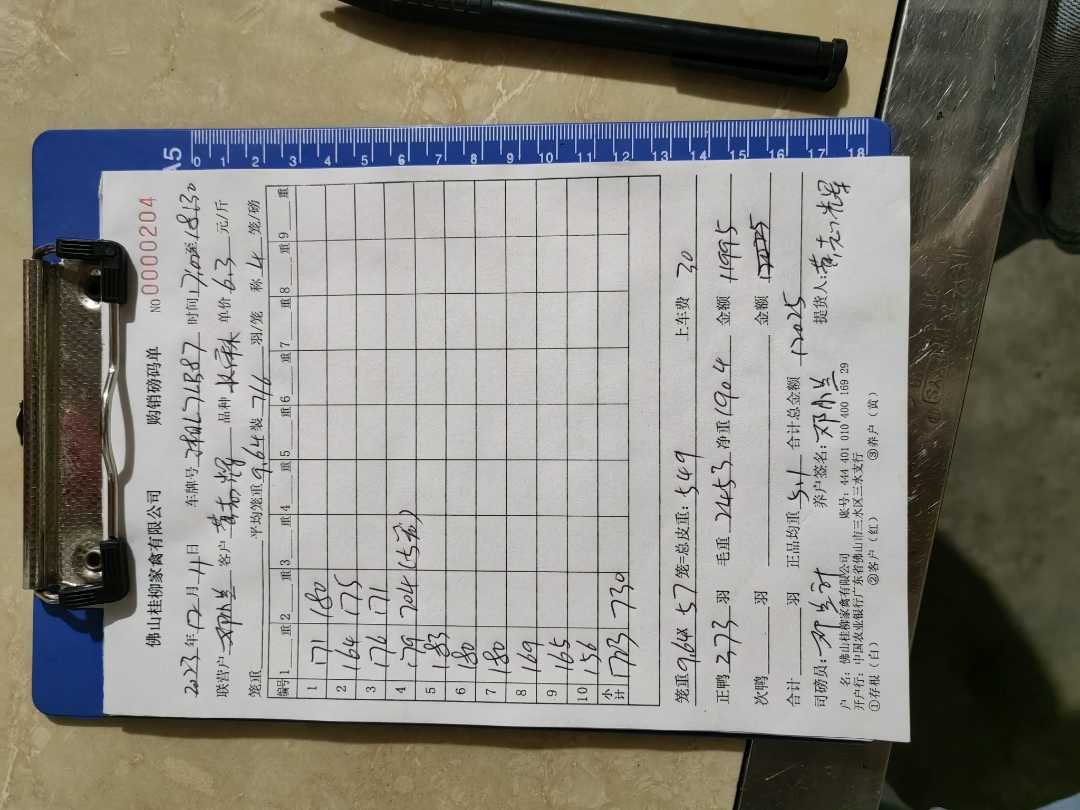 佛山桂柳家禽有限公司 购销磅码单 NO 0000204
2023年12月11日 车牌号 湘L71B87 时间17:00至18:30
联营户 邓小兰 客户 黄志辉 品种 水麻 单价 6.3 元/斤
笼重 平均笼重 9.64 装 7/6 羽/笼 称 4 笼/磅
编号 1 重 2 重 3 重 4 重 5 重 6 重 7 重 8 重 9 重
1 171 180
2 164 175
3 176 171
4 179 204 (5笼)
5 183
6 180
7 180
8 169
9 165
10 156
小计 1723 730
笼重 9.64 x 57 笼=总皮重: 549 上车费 30
正鸭 373 羽 毛重 2453 净重 1904 金额 11995
次鸭 羽 金额
合计 羽 正品均重 5.1 合计总金额 12025
司磅员: 养户签名: 邓小兰 提货人: 黄志辉
户 名: 佛山桂柳家禽有限公司 账号: 444 401 010 400 169 29
开户行: 中国农业银行广东省佛山市三水区三水支行
①存根(白) ②客户(红) ③养户(黄)
A5
0 1 2 3 4 5 6 7 8 9 10 11 12 13 14 15 16 17 18